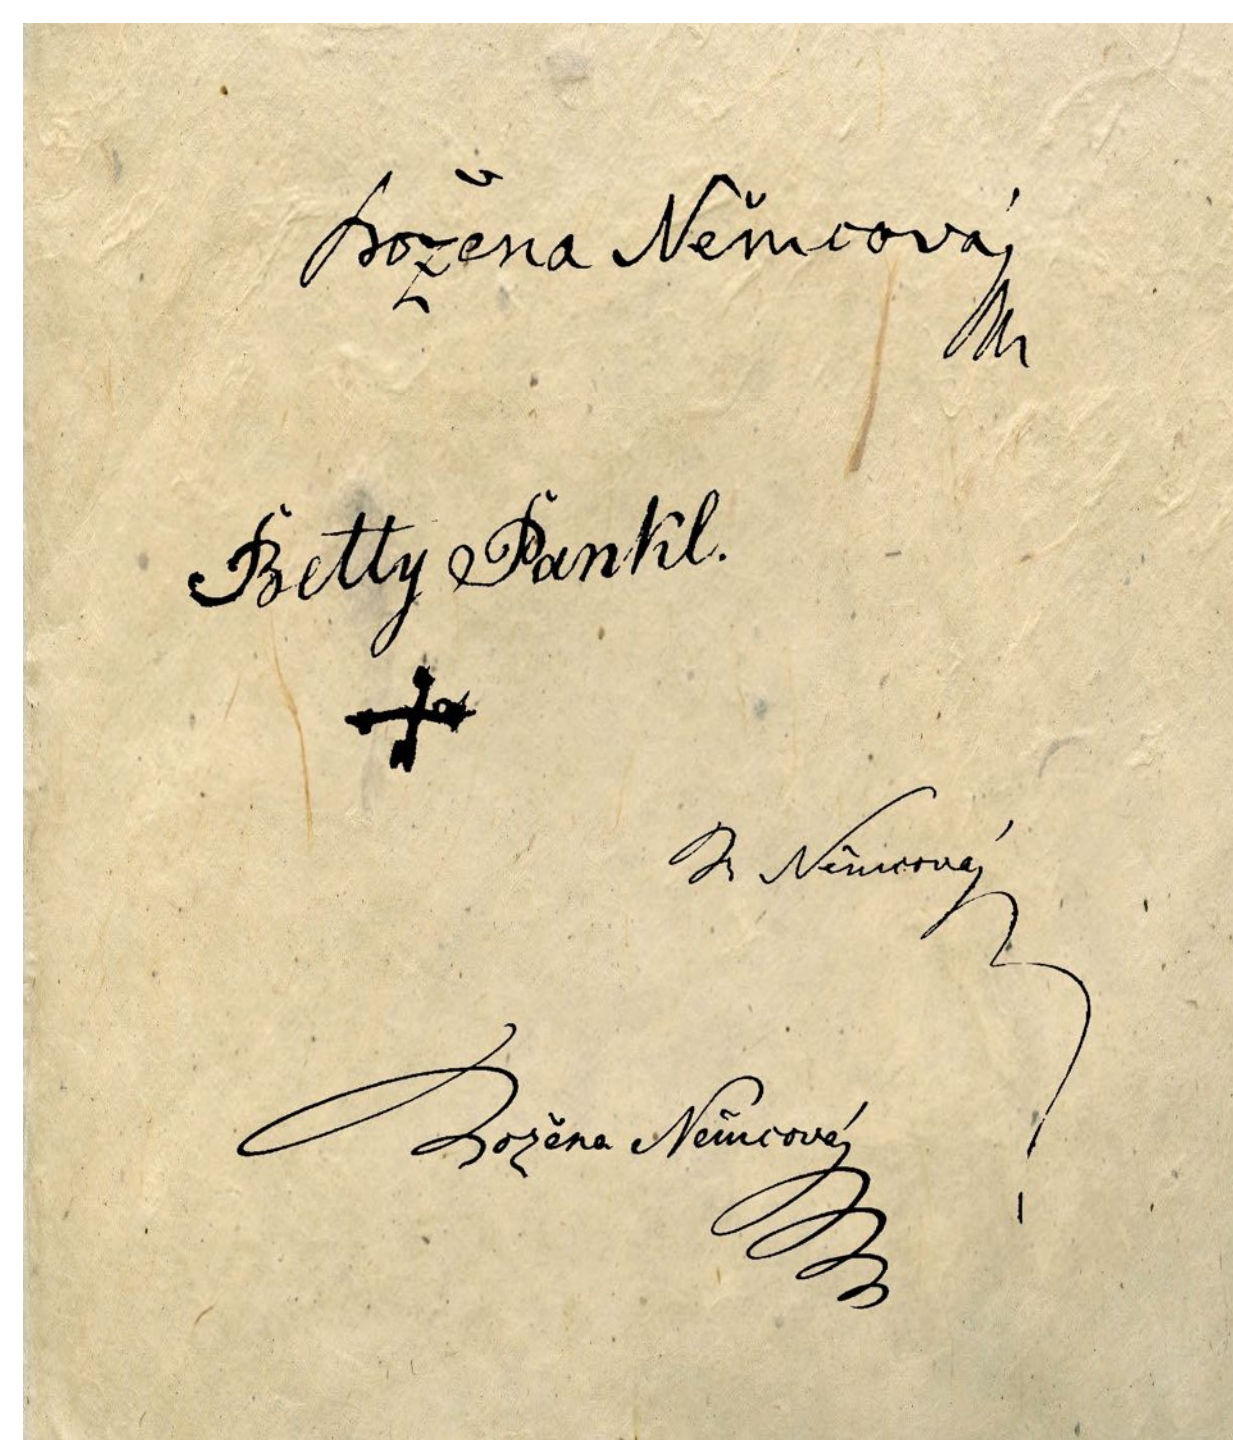 Božena Němcová
Betty Pankl.
B Němcová
Božena Němcová